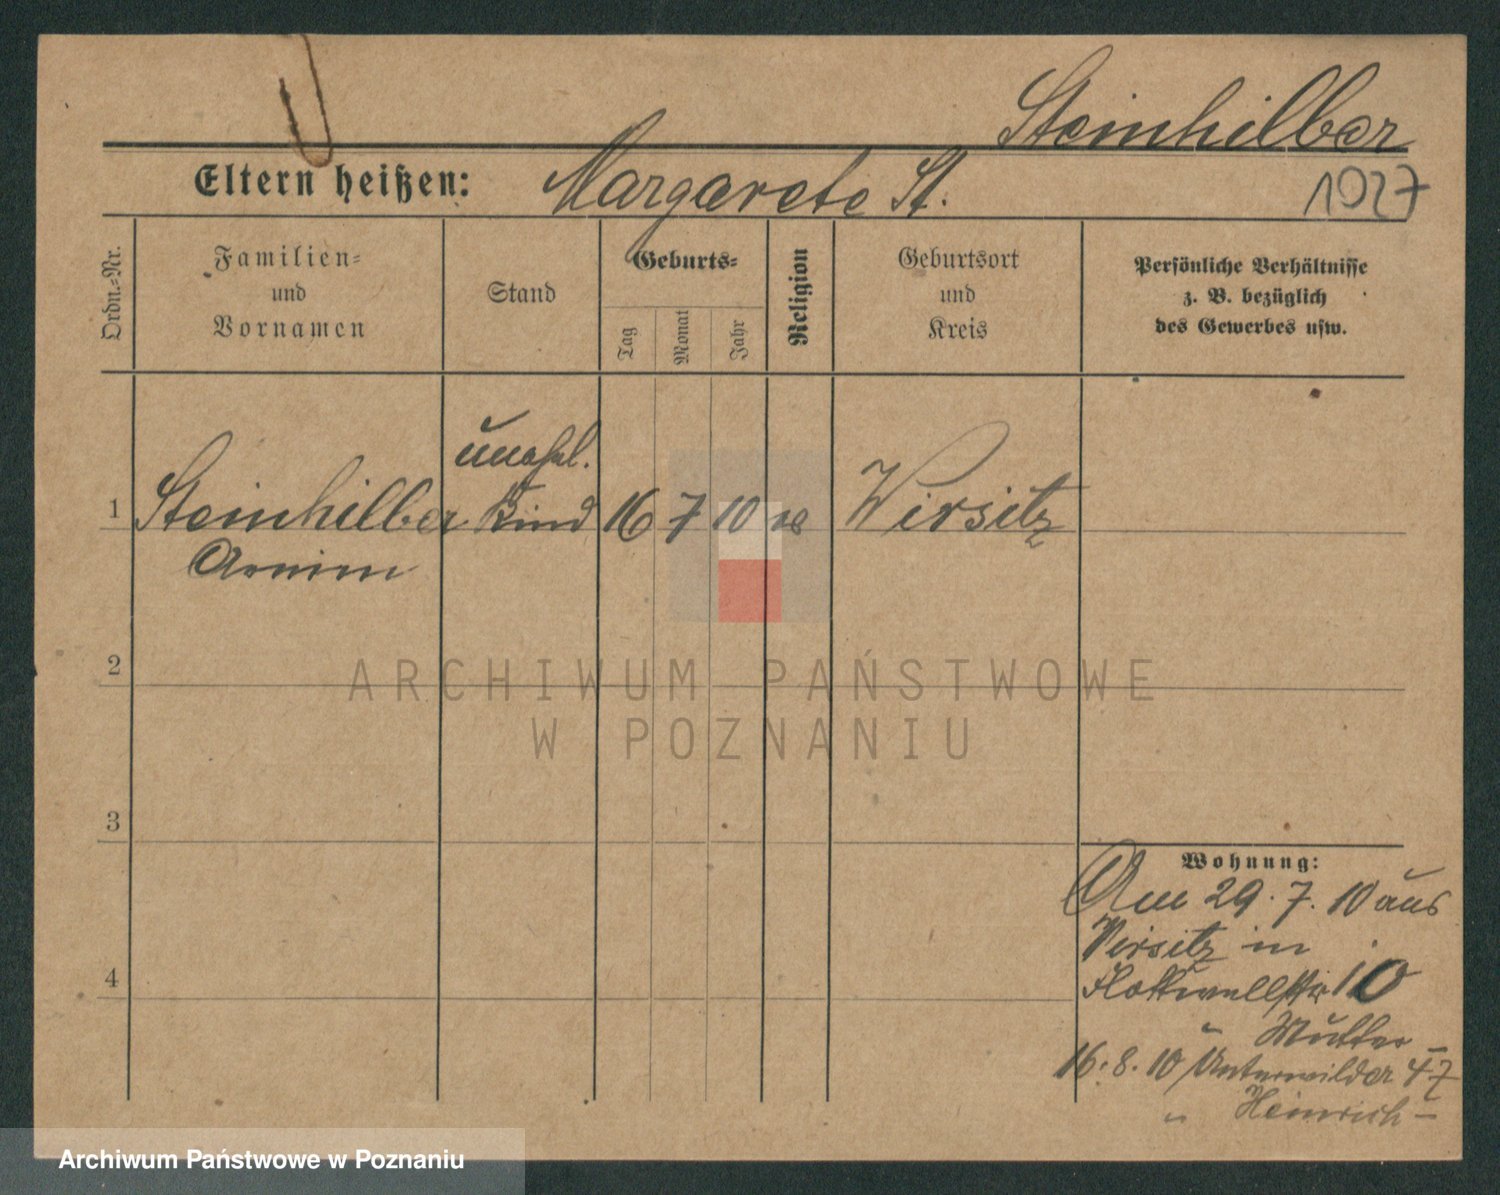 Steinhilber
Eltern heißen: Margarete St.
1927
Ordn.-Nr.
Familien-
und
Vornamen
Stand
Geburts-
Tag
Monat
Jahr
Religion
Geburtsort
und
Kreis
Persönliche Verhältnisse
z. B. bezüglich
des Gewerbes usw.
unehel.
1 Steinhilber Kind 16 7 10 Wirsitz
Armin
2
ARCHIWUM PAŃSTWOWE
W POZNANIU
3
Wohnung:
Am 29.7.10 aus
Wirsitz in
Flottwellstr 10
" Mutter -
16.8.10 Unterwilda 47
" Heinrich -
4
Archiwum Państwowe w Poznaniu